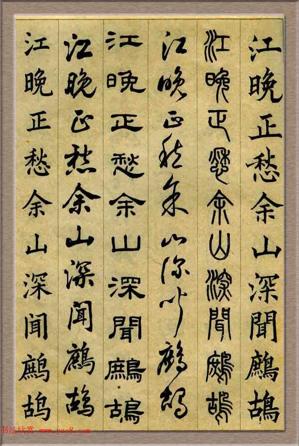 江晚正愁余山深聞鷓鴣
江晚正愁余山深聞鷓鴣
江晚正愁余山深聞鷓鴣
江晚正愁余山深聞鷓鴣
江晚正愁余山深聞鷓鴣
江晚正愁余山深闻鹧鸪
书法欣赏
www.yac8.com